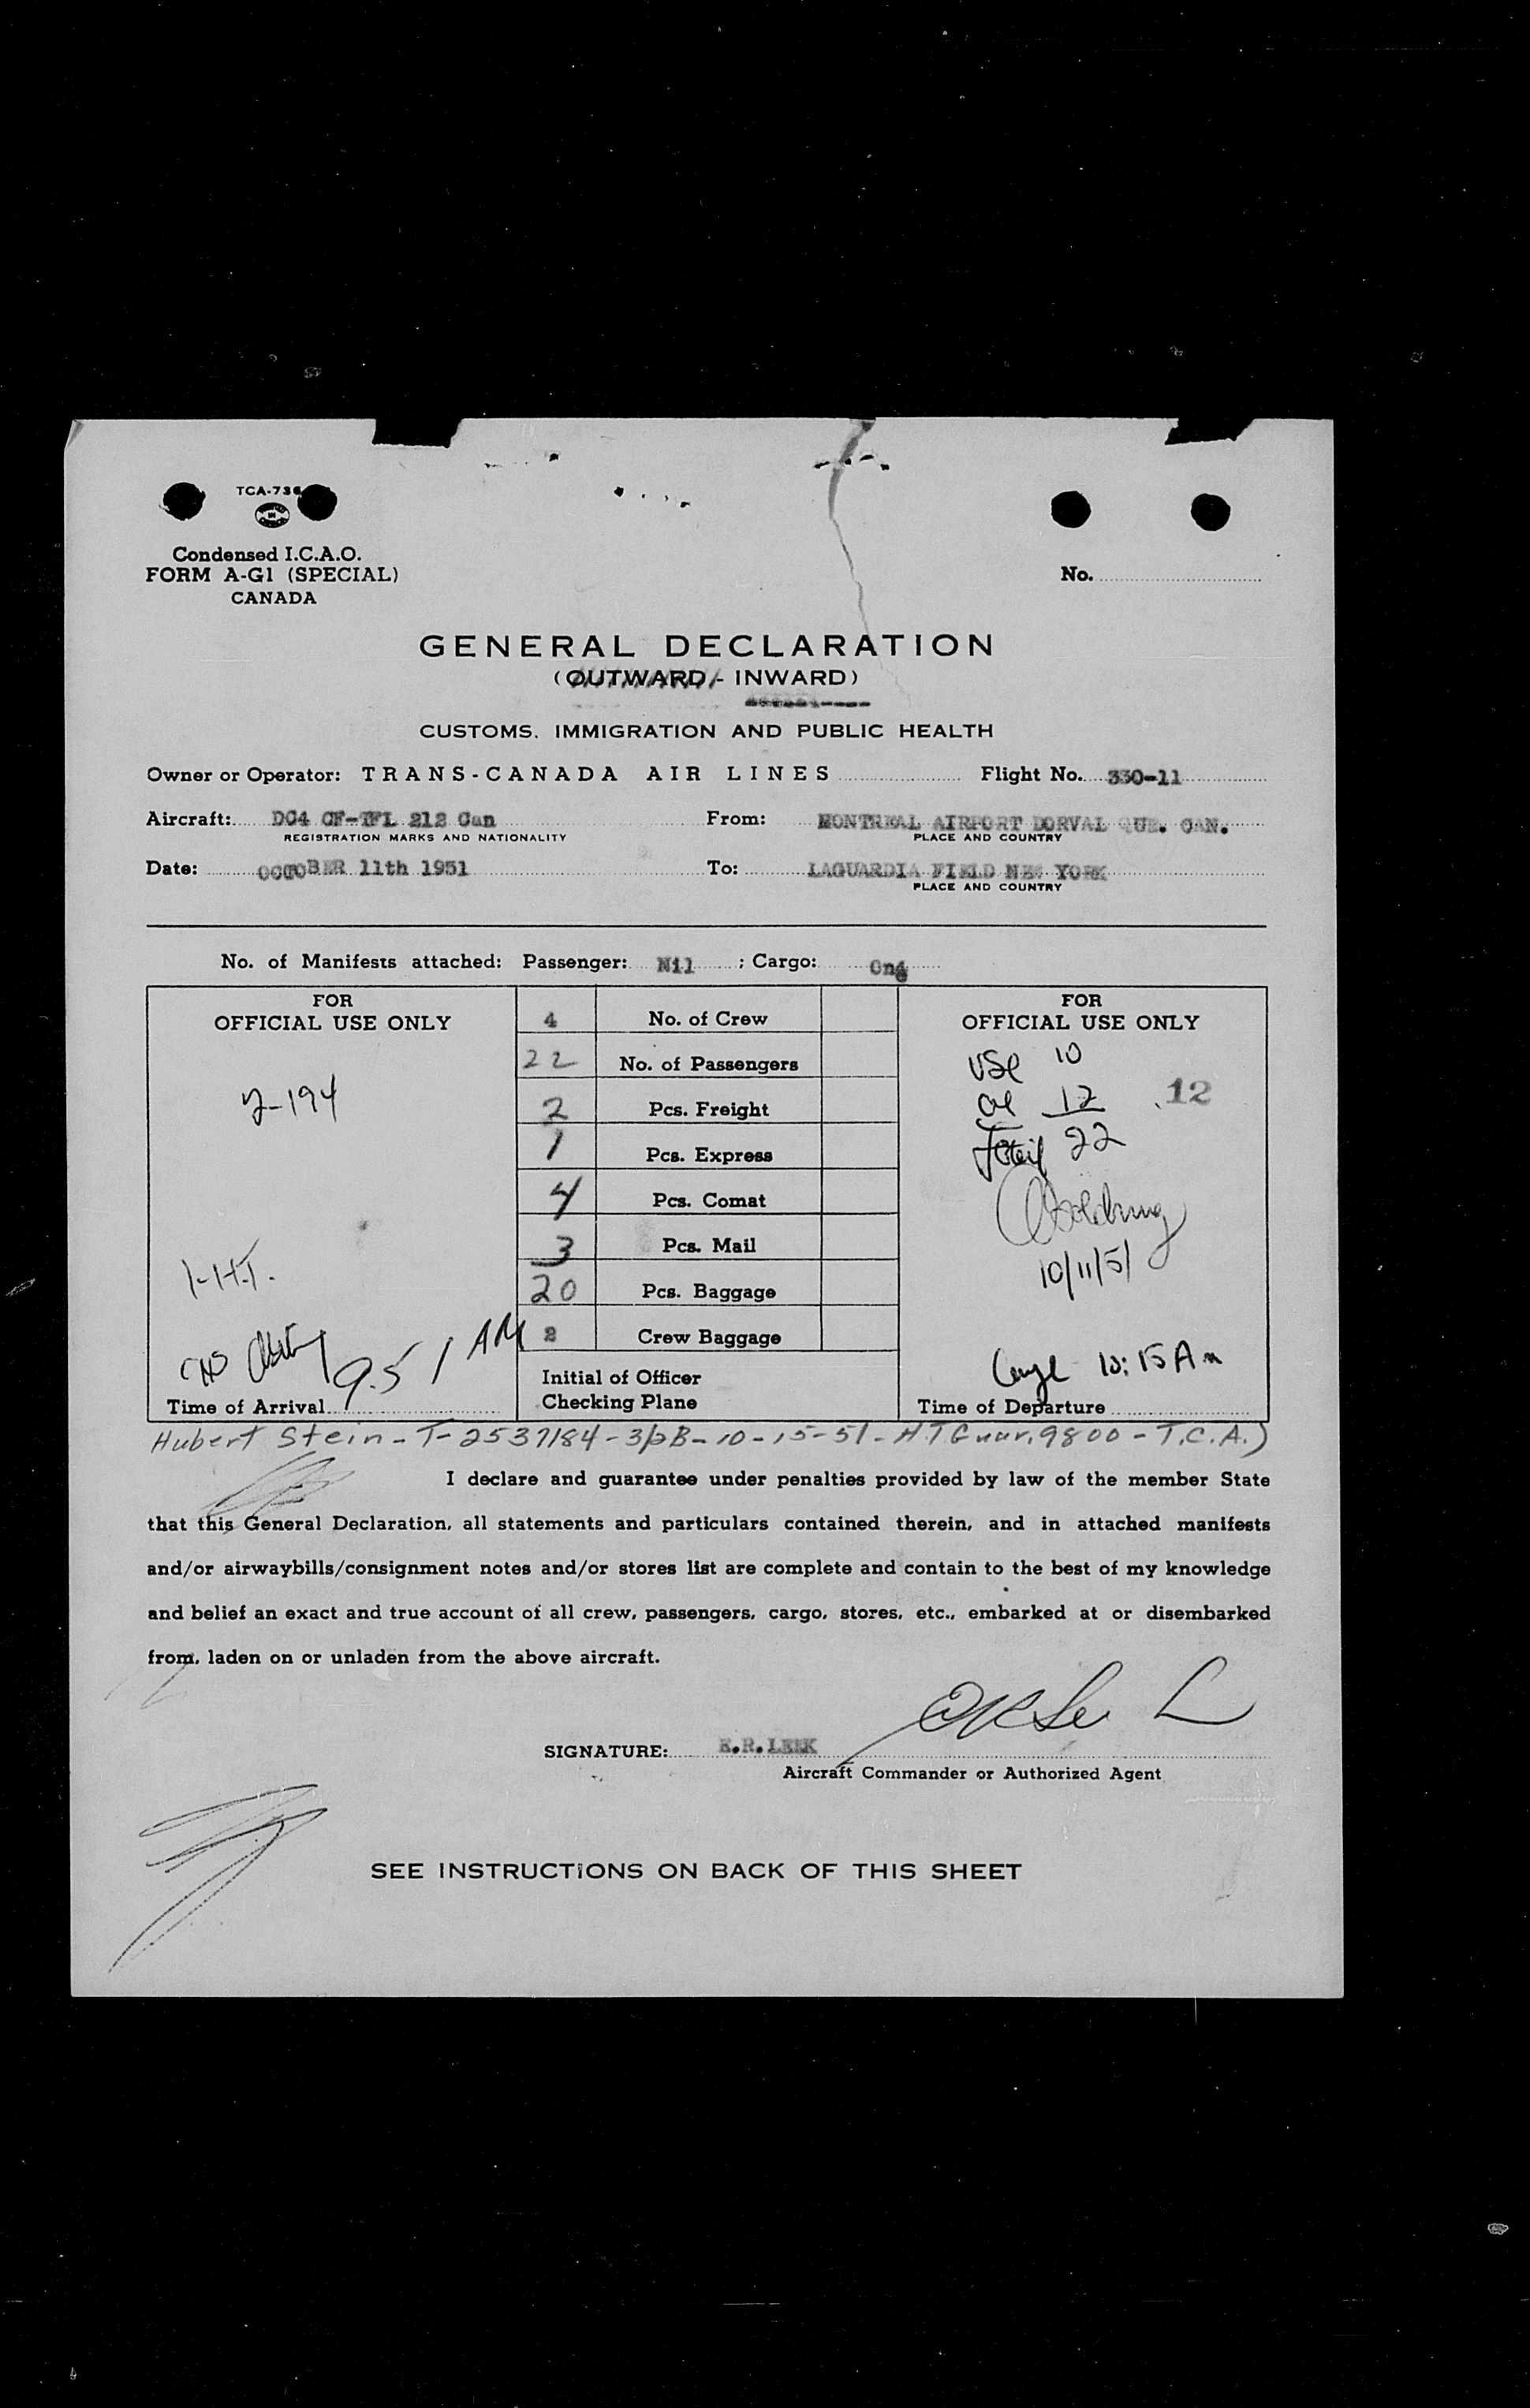 TCA-736
Condensed I.C.A.O.
FORM A-G1 (SPECIAL)
CANADA
No.
GENERAL DECLARATION
(OUTWARD - INWARD)
CUSTOMS, IMMIGRATION AND PUBLIC HEALTH
Owner or Operator: TRANS-CANADA AIR LINES Flight No. 330-11
Aircraft: DC4 CF-TFL 212 Can From: MONTREAL AIRPORT DORVAL QUE. CAN.
REGISTRATION MARKS AND NATIONALITY PLACE AND COUNTRY
Date: OCTOBER 11th 1951 To: LAGUARDIA FIELD NEW YORK
PLACE AND COUNTRY
No. of Manifests attached: Passenger: Nil ; Cargo: One
FOR
OFFICIAL USE ONLY
2-194
1-H.T.
9.51 AM
Time of Arrival
4 No. of Crew
22 No. of Passengers
2 Pcs. Freight
1 Pcs. Express
4 Pcs. Comat
3 Pcs. Mail
20 Pcs. Baggage
2 Crew Baggage
Initial of Officer
Checking Plane
FOR
OFFICIAL USE ONLY
USC 10
al 12 12
Total 22
10/11/51
10:15 Am
Time of Departure
Hubert Stein - T-2537184 - 3/2B - 10-15-51 - H.T Guar. 9800 - T.C.A.)
I declare and guarantee under penalties provided by law of the member State
that this General Declaration, all statements and particulars contained therein, and in attached manifests
and/or airwaybills/consignment notes and/or stores list are complete and contain to the best of my knowledge
and belief an exact and true account of all crew, passengers, cargo, stores, etc., embarked at or disembarked
from, laden on or unladen from the above aircraft.
SIGNATURE: E.R. LEEK
Aircraft Commander or Authorized Agent
SEE INSTRUCTIONS ON BACK OF THIS SHEET